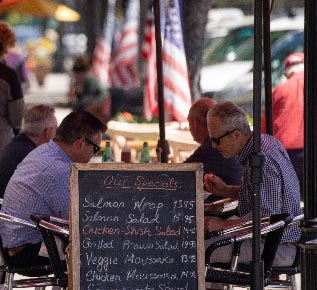 Our Specials
Salmon Wrap 13.95
Salmon Salad 15.95
Chicken-Shish Salad
Grilled Prawn Salad
Veggie Moussaka
Chicken Moussaka